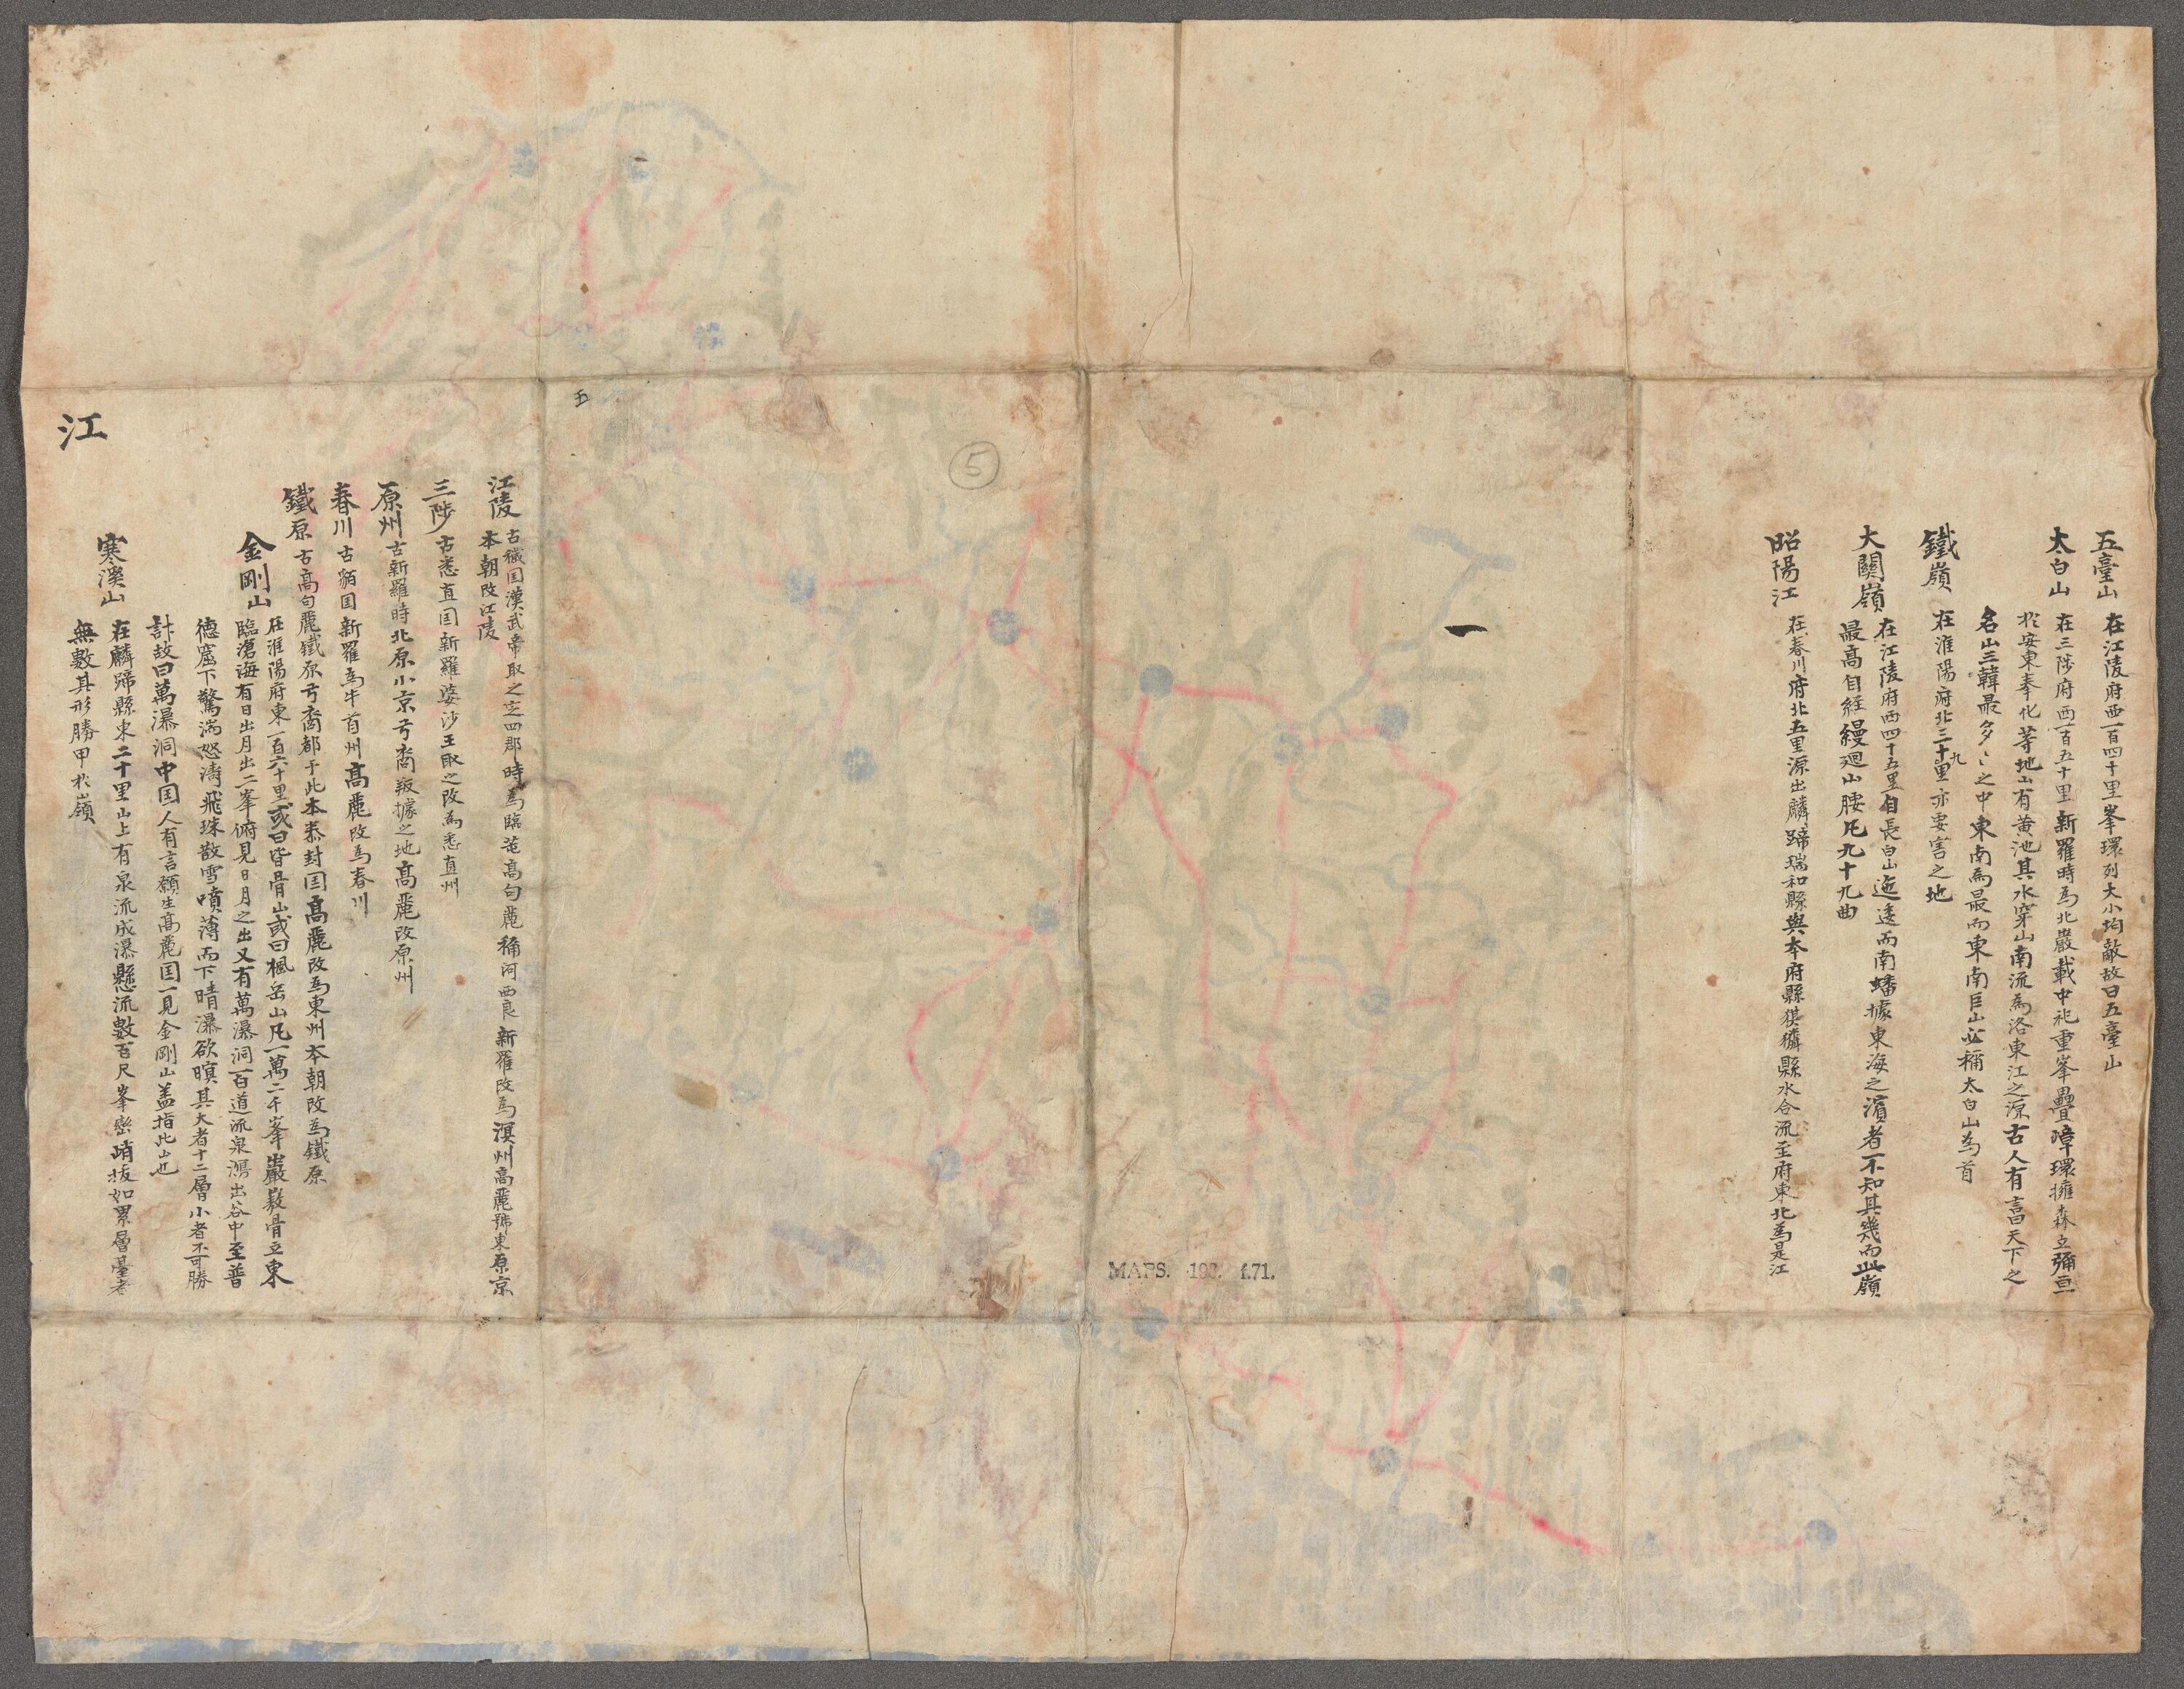 五臺山 在江陵府西一百四十里峯環列大小均敵故曰五臺山
太白山 在三陟府西一百五十里新羅時為北嶽載中祀重峯疊嶂環擁森立彌亘
於安東奉化等地山有黃池其水穿山南流為洛東江之源古人有言曰天下之
名山三韓最多〻之中東南為最而東南巨山必稱太白山為首
鐵嶺 在淮陽府北三十九里亦要害之地
大關嶺 在江陵府西四十五里自長白山迤逶而南蟠據東海之濱者不知其幾而此嶺
最高自經縵廻山腰凡九十九曲
昭陽江 在春川府北五里源出麟蹄瑞和縣與本府縣猉獜縣水合流至府東北為是江
一
⑤
五
MAPS. 193. f.71.
江陵 古穢国漢武帝取之㝎四郡時為臨芚高句麗稱河西良新羅改為溟州高麗號東原京
本朝改江陵
三陟 古悉直国新羅婆沙王取之改為悉直州
原州 古新羅時北原小京弓裔叛據之地高麗改原州
春川 古貊国新羅為牛首州高麗改為春川
鐵原 古高句麗鐵原弓裔都于此本泰封国高麗改為東州本朝改為鐵原
金剛山 在淮陽府東一百六十里或曰皆骨山或曰楓岳山凡一萬二千峯巖嶔骨立東
臨滄海有日出月出二峯俯見日月之出又有萬瀑洞百道流泉瀉出谷中至普
德窟下驚湍怒濤飛珠散雪噴薄而下晴瀑欲暝其大者十二層小者不可勝
計故曰萬瀑洞中国人有言願生高麗国一見金剛山盖指此山也
寒溪山 在麟蹄縣東二十里山上有泉流成瀑懸流數百尺峯巒峭拔如累層臺者
無數其形勝甲於嶺
江